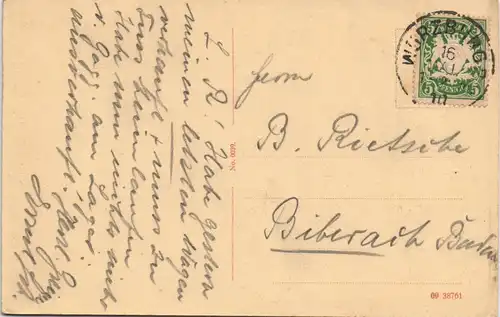 L. R! Habe gestern
meinen letzten Wagen
verkauft & muss zu
Fuss heimlaufen
Habe nun nichts mehr
v. Gagg. am Lager
ausverkauft. Herzl.
No. 0699.
WÜRZBURG
16
III
5 5
Herrn
B. Rietsche
Biberach Baden
09 38761